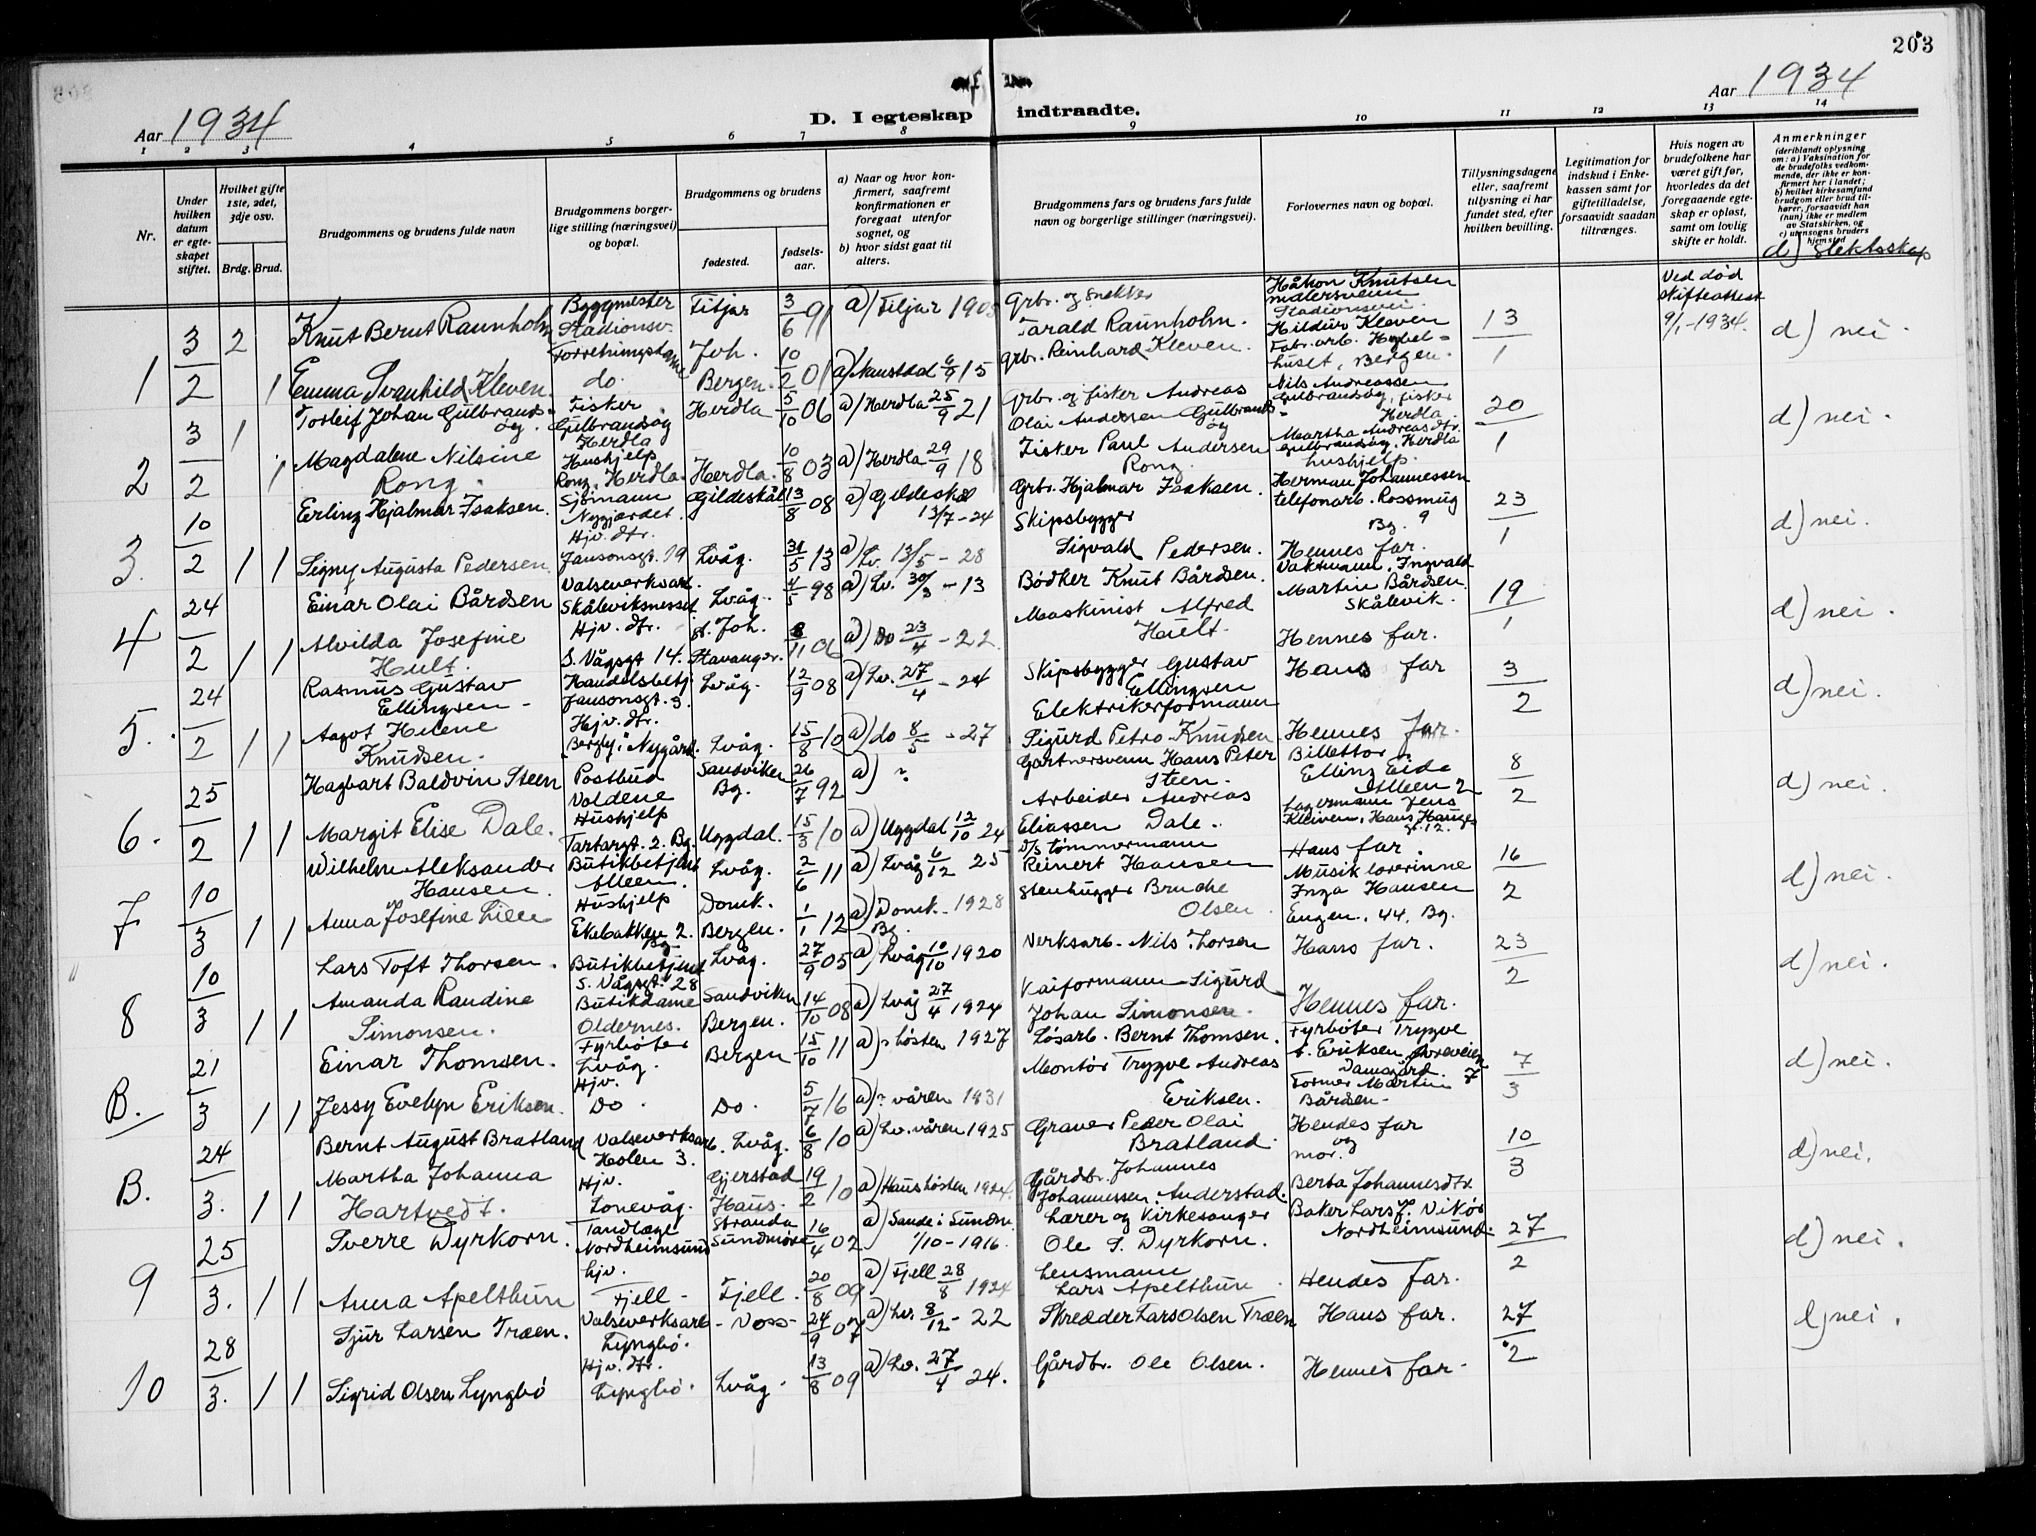 203
Aar 1934
D. I egteskap indtraadte.
Aar 1934
1 2 3 4 5 6 7 8 9 10 11 12 13 14
Nr.
Under hvilken datum er egteskapet stiftet.
Hvilket gifte 1ste, 2det, 3dje osv.
Brdg. Brud.
Brudgommens og brudens fulde navn
Brudgommens borgerlige stilling (næringsvei) og bopæl.
Brudgommens og brudens
fødested.
fødselsaar.
a) Naar og hvor konfirmert, saafremt konfirmationen er foregaat utenfor sognet, og
b) hvor sidst gaat til alters.
Brudgommens fars og brudens fars fulde navn og borgerlige stillinger (næringsvei).
Forlovernes navn og bopæl.
Tillysningsdagene eller, saafremt tillysning ei har fundet sted, efter hvilken bevilling.
Legitimation for indskud i Enkekassen samt for giftetilladelse, forsaavidt saadan tiltrænges.
Hvis nogen av brudefolkene har været gift før, hvorledes da det foregaaende egteskap er opløst, samt om lovlig skifte er holdt.
Anmerkninger
(deriblandt oplysning om: a) Vaksination for de brudefolks vedkommende, der ikke er konfirmert her i landet; b) hvilket kirkesamfund brudgom eller brud tilhører, forsaavidt han (hun) ikke er medlem av Statskirken, og c) utensogns bruders hjemsted
d) slektsskap
1 3/2 2 Knut Bernt Raunholm Byggmester Stadionsv. Fitjar 3/6 91 a) Fitjar 1905 Grbr. og snekker Tarald Raunholm. Håkon Knutsen malersvenn Stadionsvei. 13/1 Ved død Skifteattest 9/1-1934. d) nei.
1 Emma Svanhild Kleven. Forretningsdame do. Joh. Bergen. 10/2 01 a) Naustdal 15 Grbr. Reinhard Kleven. Hildur Kleven Fabr.arb. Hybelhuset, Bergen.
2 3/2 1 Torleif Johan Gulbrandsøy. Fisker Gulbrandsøy Herdla Herdla 5/10 06 a) Herdla 25/9 21 Grbr. og fisker Andreas Olai Andersen Gulbrandsøy Nils Andreassen Gulbrandsøy, fisker Herdla 20/1 d) nei.
1 Magdalene Nilsine Rong. Hushjelp Rong, Herdla. Herdla. 10/8 03 a) Herdla 29/9 18 Fisker Paul Andersen Rong. Martha Andreasdtr. Gulbrandsøy, Herdla hushjelp.
3. 10/2 1 Erling Hjalmar Isaksen. Sjømann Nygjærdet. Gildeskål 13/8 08 a) Gildeskål 13/7-24 Grbr. Hjalmar Isaksen. Herman Johannessen telefonarb. Rossmug 9 Bg. 23/1 d) nei.
1 Signy Augusta Pedersen. Hjv. dtr. Jansonsgt. 19 Lvåg. 31/5 13 a) Lv. 13/5-28 Skipsbygger Sigvald Pedersen. Hennes far.
4 24/2 1 Einar Olai Bårdsen Valseverksarb. Skåleviksnesset Lvåg. 4/5 98 a) Lv. 30/3-13 Bødker Knut Bårdsen. Vaktmann, Ingvald Martin Bårdsen Skålevik. 19/1 d) nei.
1 Alvilda Josefine Hult. Hjv. dtr. S. Vågsgt 14. St. Joh. Stavanger. 8/11 06 a) Do 23/4-22. Maskinist Alfred Hult. Hennes far.
5. 24/2 1 Rasmus Gustav Ellingsen Handelsbetj. Jansonsgt. 3. Lvåg. 12/9 08 a) Lv. 27/4-24 Skipsbygger Gustav Ellingsen Hans far 3/2 d) nei.
1 Aagot Helene Knudsen. Hjv. dtr. "Bergly" Nygård. Lvåg. 15/8 10 a) do 8/5-27 Elektrikerformann Sigurd Petro Knudsen Hennes far.
6. 25/2 1 Hagbart Baldvin Steen Postbud Voldene Sandviken Bg. 26/7 92 a) ? Gartnersvenn Hans Peter Steen. Billettør Elling Eide Alleen 2 8/2 d) nei.
1 Margit Elise Dale. Hushjelp Tartargt. 2. Bg. Uggdal. 15/3 10 a) Uggdal 12/10 24 Arbeider Andreas Eliassen Dale. Lagermann Jens Kleiven, Hans Hauges gt. 12.
7 10/3 1 Wilhelm Aleksander Hansen. Butikkbetjent Alleen. Lvåg. 2/6 11 a) Lvåg 6/12 25 D/s tømmermann Reinert Hansen Hans far. 16/2 d) nei.
1 Anna Josefine Lien Hushjelp Ekebakken 2. Bg Domk. Bergen. 1/1 12 a) Domk. 1928 Bg. Stenhugger Brude Olsen. Musiklærerinne Inga Hansen Engen. 44. Bg.
8 10/3 1 Lars Toft Thorsen. Butikbetjent S. Vågsgt. 28 Lvåg. 27/9 05 a) Lvåg 10/10 1920 Verksarb. Nils Thorsen Hans far. 23/2 d) nei.
1 Amanda Randine Simonsen. Butikdame Oldernes. Sandviken Bergen. 14/10 08 a) Lvåg 27/4 1924 Kaiformann Sigurd Johan Simonsen. Hennes far.
B. 21/3 1 Einar Thomsen. Fyrbøter Lvåg. Bergen 15/10 11 a) ? høsten 1927 Løsarb. Bernt Thomsen. Fyrbøter Trygve A. Eriksen, Øvreveien 7 Damsgård. 7/3 d) nei.
1 Jessy Evelyn Eriksen. Hjv. Do. Do. 5/7 16 a) ? våren 1931 Montør Trygve Andreas Eriksen. Former Martin Bårdsen.
B. 24/3. 1 Bernt August Bratland Valseverksarb. Holen 3. Lvåg. 6/8 10 a) Lv. våren 1925 Graver Peder Olai Bratland. Hendes far og mor. 10/3 d) nei.
1 Martha Johanna Hartvedt. Hjv. Lonevåg. Gjerstad Haus. 19/2 10 a) Haus høsten 1924. Gårdbr. Johannes Johannessen Anderstad. Berta Johannesdtr.
9 25/3. 1 Sverre Dyrkorn. Tandlæge Nordheimsund Stranda Sundmøre 16/4 02 a) Sande i Sundm. 1/10-1916. Lærer og kirkesanger Ole S. Dyrkorn. Baker Lars J. Vikør Nordheimsund. 27/2 d) nei.
1 Anna Apelthun hjv. Fjell Fjell. 20/8 09 a) Fjell 28/8 1924 Lensmann Lars Apelthun. Hendes far.
10 28/3. 1 Sjur Larsen Træen. Valseverksarb. Lyngbø. Voss 24/9 07 a) Lv. 8/12-22 Skredder Lars Olsen Træen Hans far. 27/2 d) nei.
1 Sigrid Olsen Lyngbø Hjv. dtr. Lyngbø. Lvåg. 13/8 09 a) Lv. 27/4 24. Gårdbr. Ole Olsen. Hennes far.